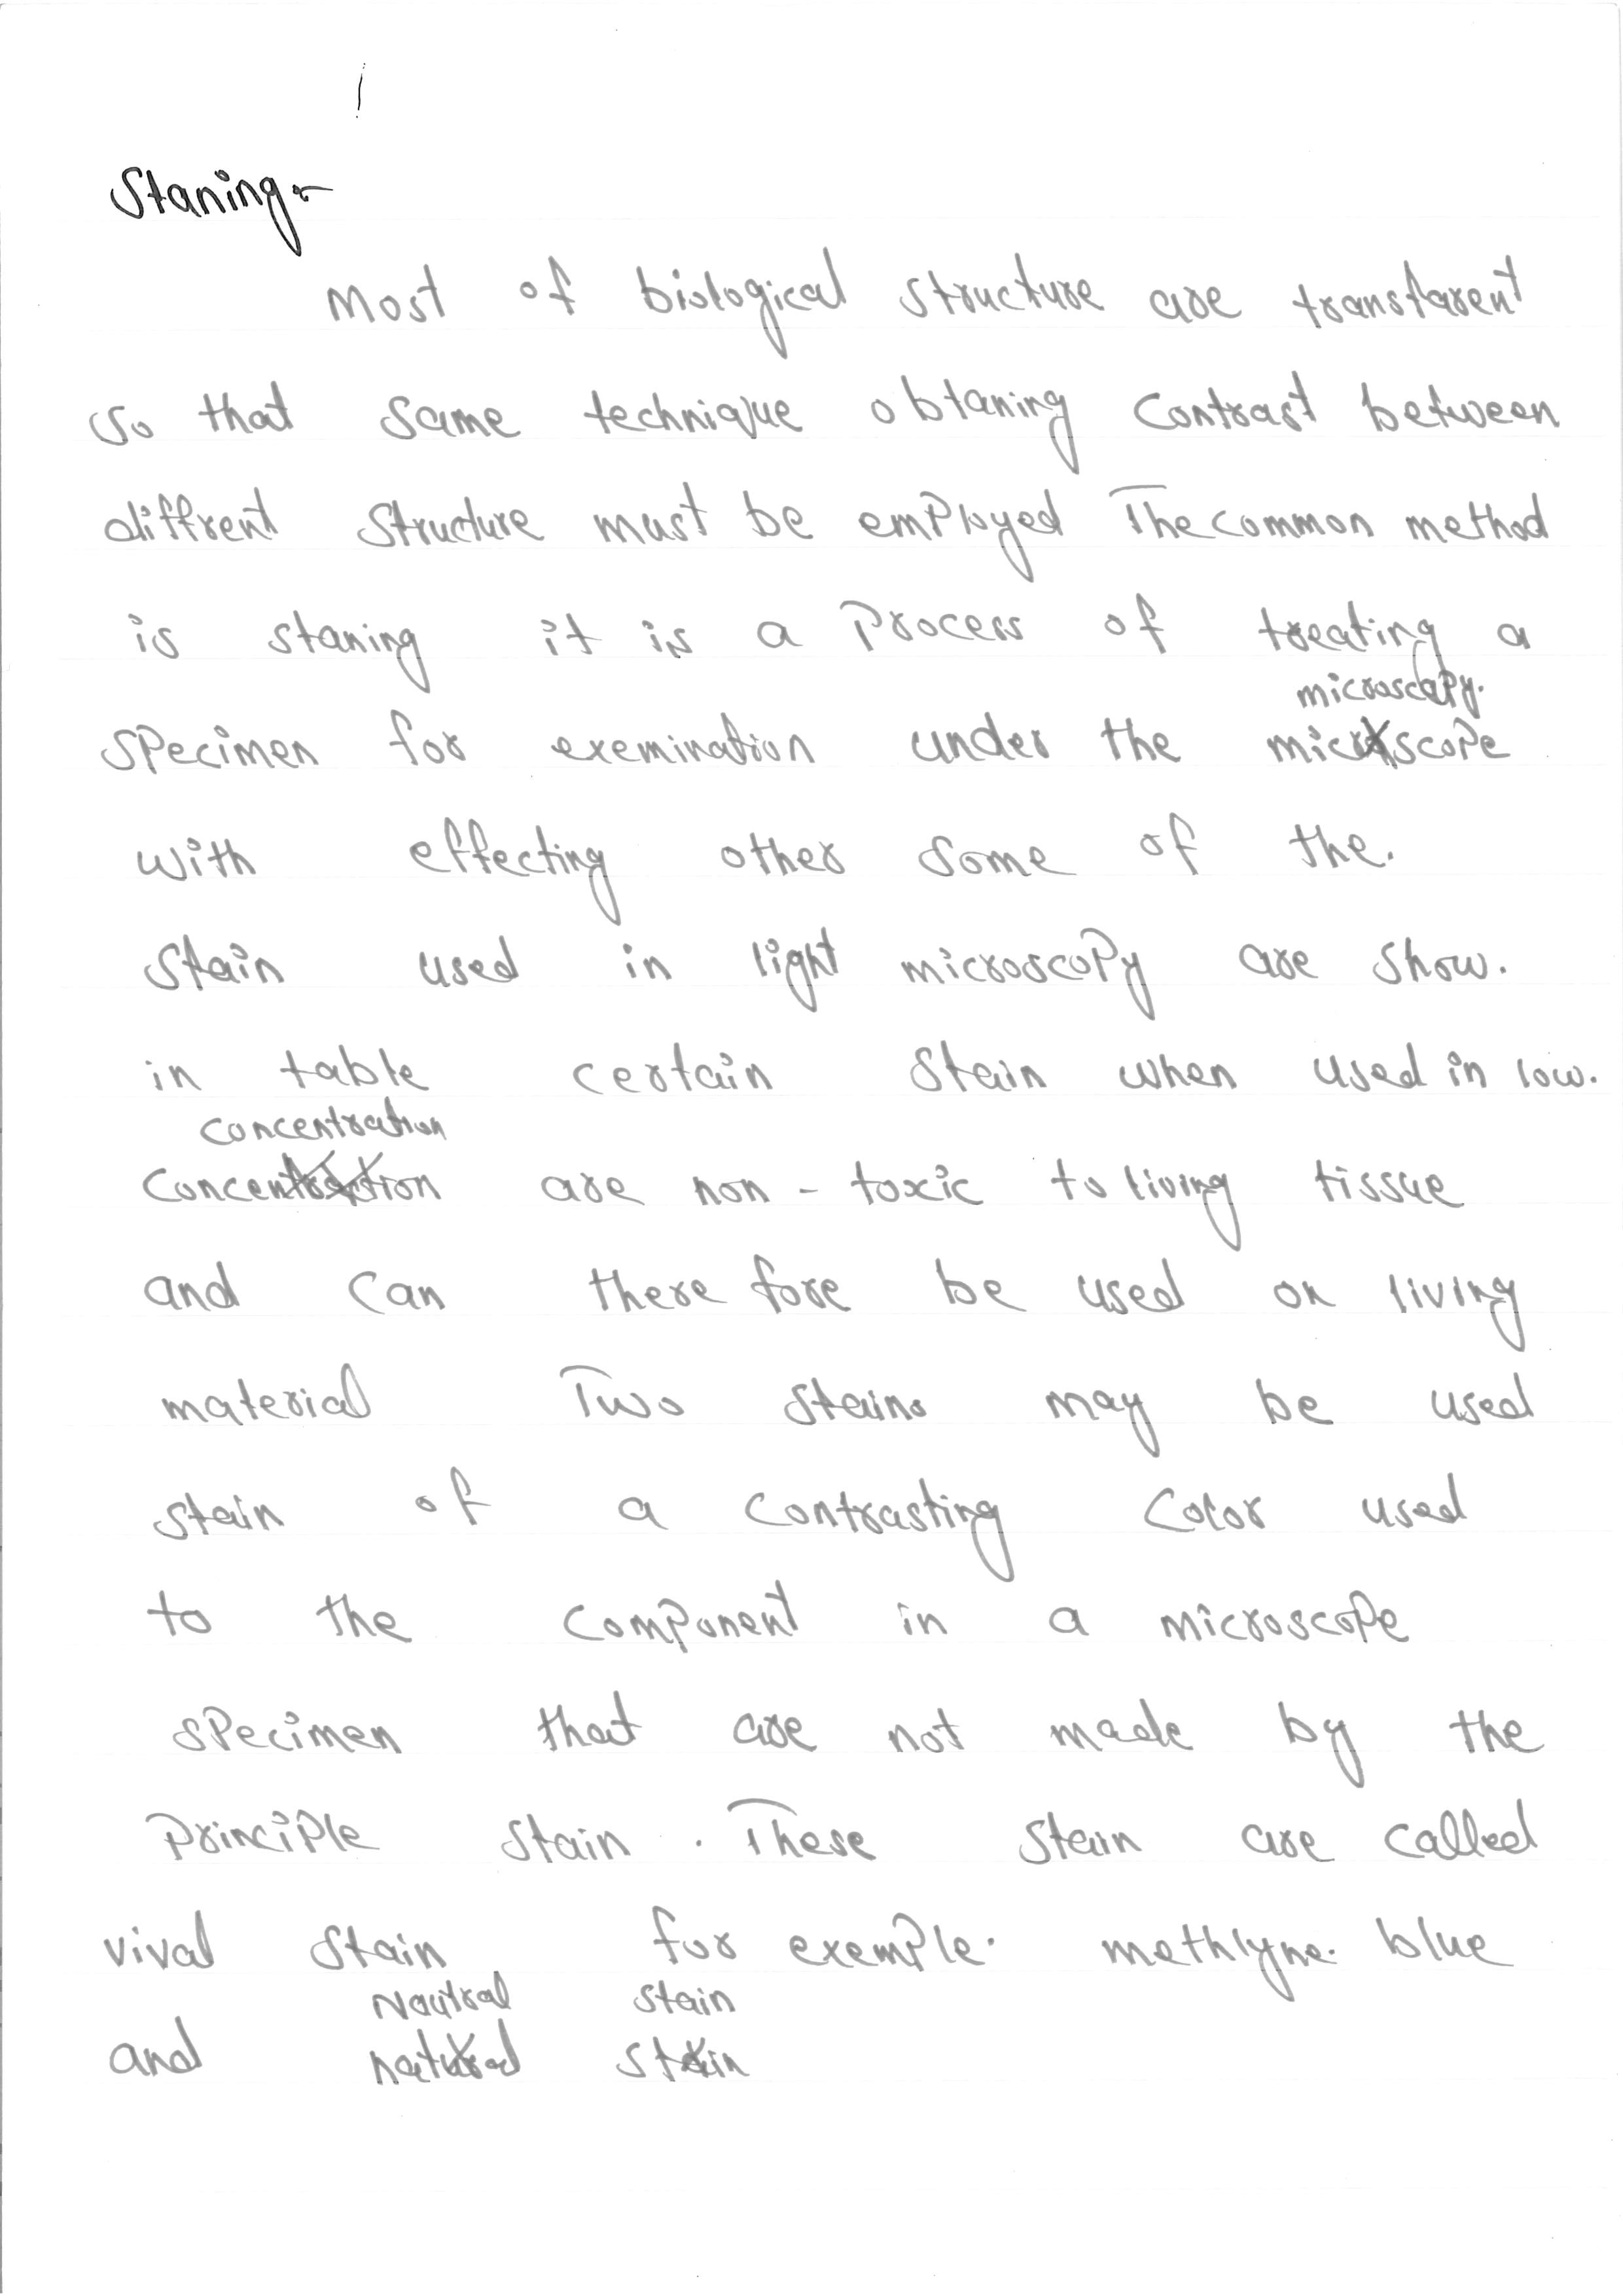 Staning:-
Most of biological structure are transfarent
so that same technique obtaning contrast between
diffrent structure must be employed The common method
is staning it is a Process of treating a
microscapy.
specimen for exemination under the microscope
with effecting other some of the.
stain used in light microscopy are show.
in table certain stain when used in low.
concentration
concentration are non - toxic to living tissue
and can there fore be used on living
material Two stains may be used
stain of a contrasting color used
to the component in a microscope
specimen that are not made by the
Principle stain . These stain are called
vival stain for exemple. methlyne. blue
Nautral stain
and natural stain